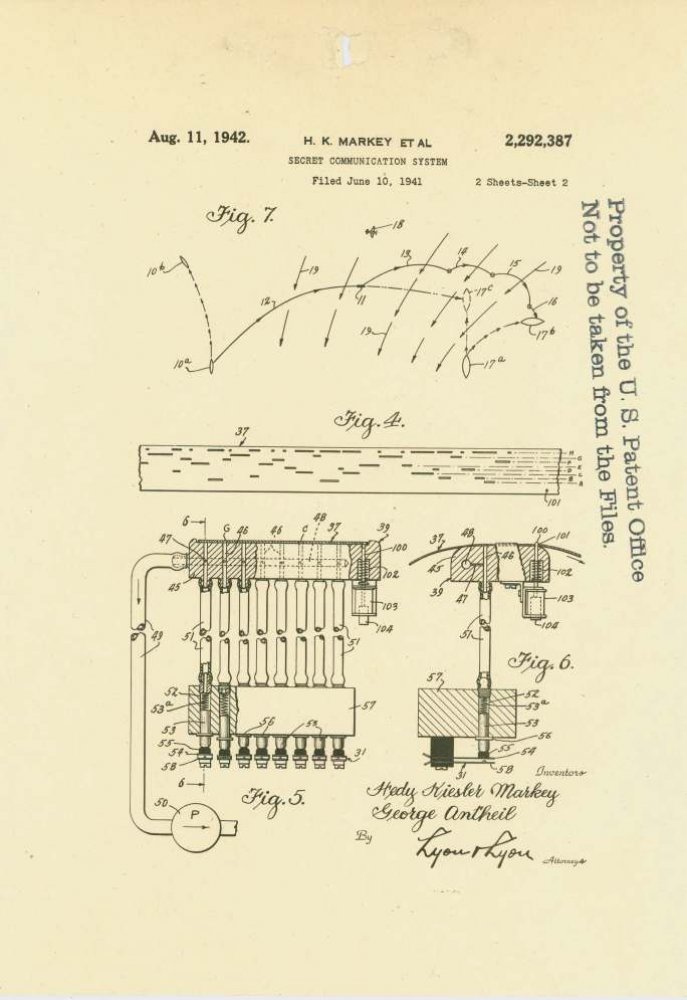 Aug. 11, 1942.
H. K. MARKEY ET AL
2,292,387
SECRET COMMUNICATION SYSTEM
Filed June 10, 1941
2 Sheets-Sheet 2
Property of the U. S. Patent Office
Not to be taken from the Files.
Fig. 7.
18
10b
19
13
14
15
19
12
11
17c
16
19
17b
10a
17a
Fig. 4.
37
101
6
47
G
46
46
C
48
37
39
100
102
45
103
104
49
51
51
52
53a
53
55
54
58
56
57
31
6
50
P
Fig. 5.
37
48
46
100
101
45
39
47
102
103
104
51
Fig. 6.
57
52
53a
53
56
55
54
58
31
Inventors
Hedy Kiesler Markey
George Antheil
By
Lyon & Lyon
Attorneys